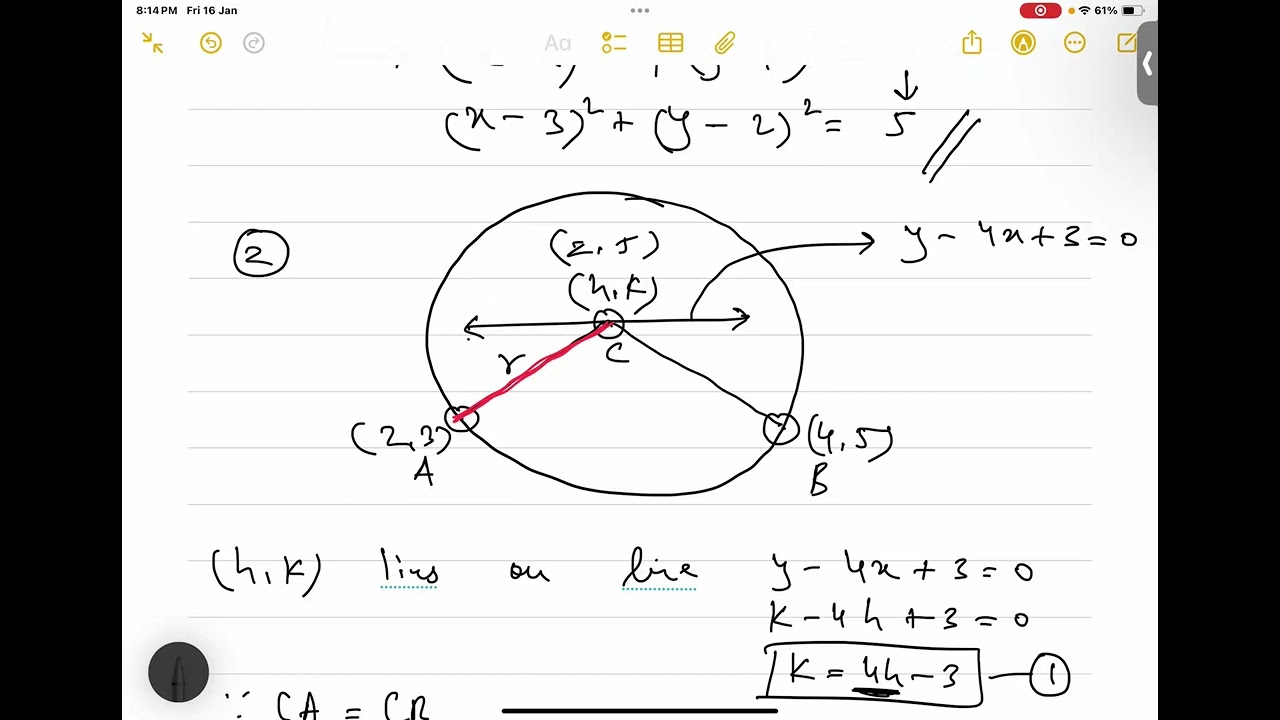 8:14 PM Fri 16 Jan
61%
Aa
(x - 3)² + (y - 2)² = 5
2
(2, 5)
y - 4x + 3 = 0
(h, k)
C
r
(2, 3)
A
(4, 5)
B
(h, k) lies on line y - 4x + 3 = 0
k - 4h + 3 = 0
k = 4h - 3 — 1
∵ CA = CB